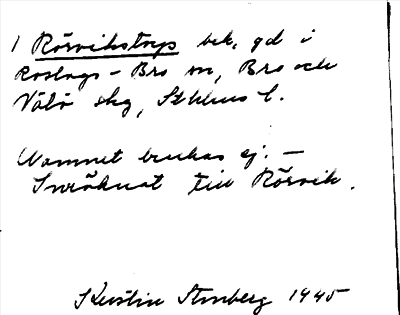 1 Rörvikstorp bek. gd i
Roslags-Bro sn, Bro och
Vätö skg, Sthlms l.
Namnet brukas ej. —
Inräknat till Rörvik.
Kerstin Strnberg 1945